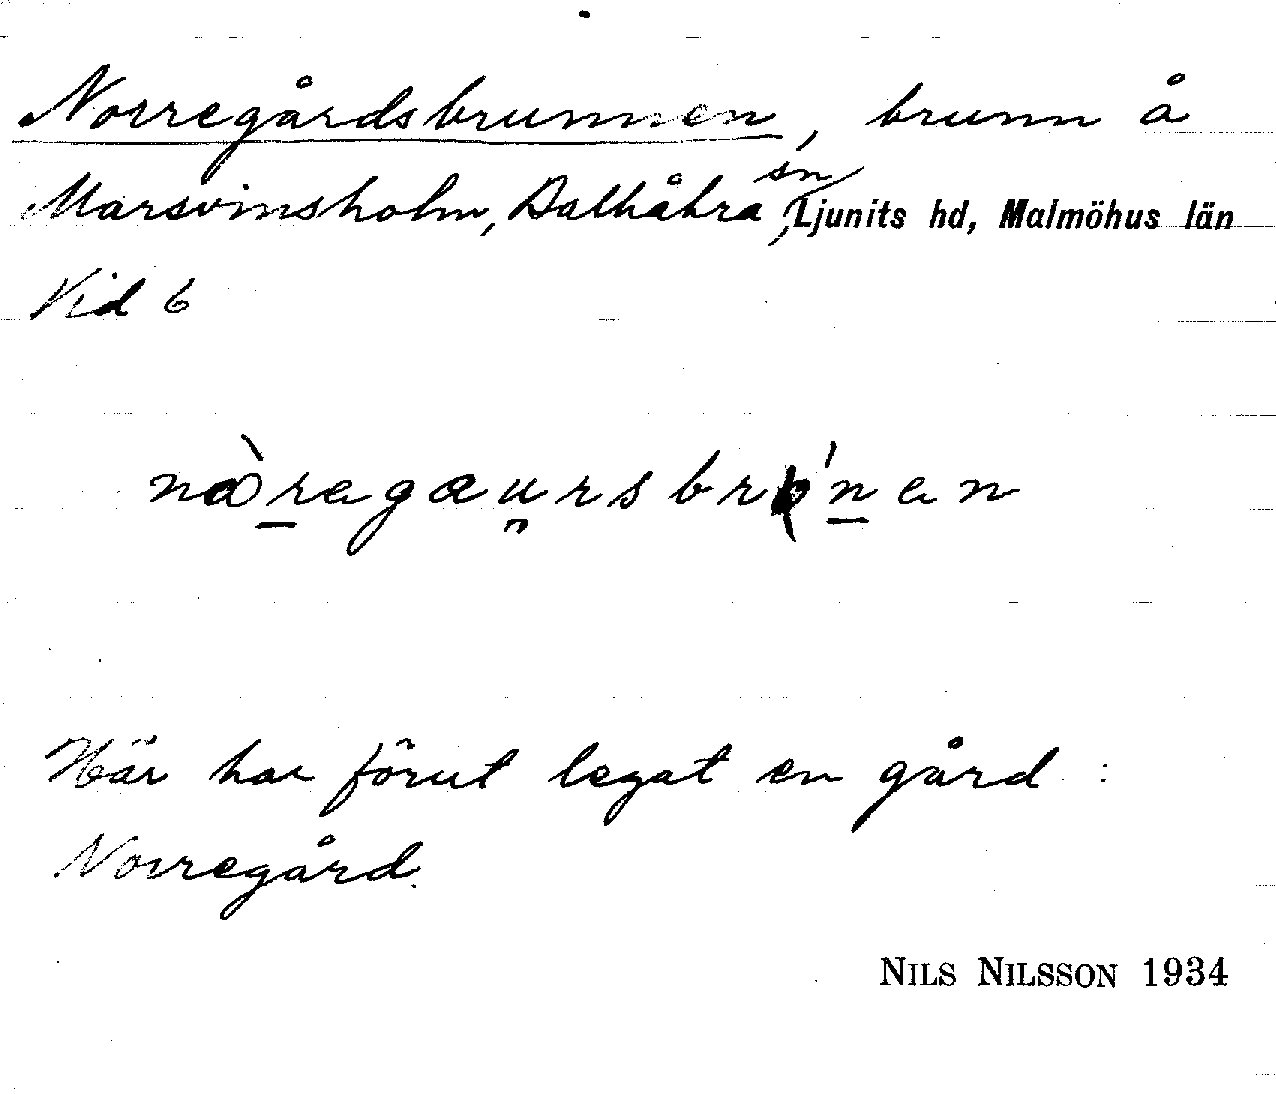 Norregårdsbrunnen, brunn å
Marsvinsholm, Balkåkra sn, Ljunits hd, Malmöhus län
Vid 6
Här har förut legat en gård:
Norregård.
NILS NILSSON 1934